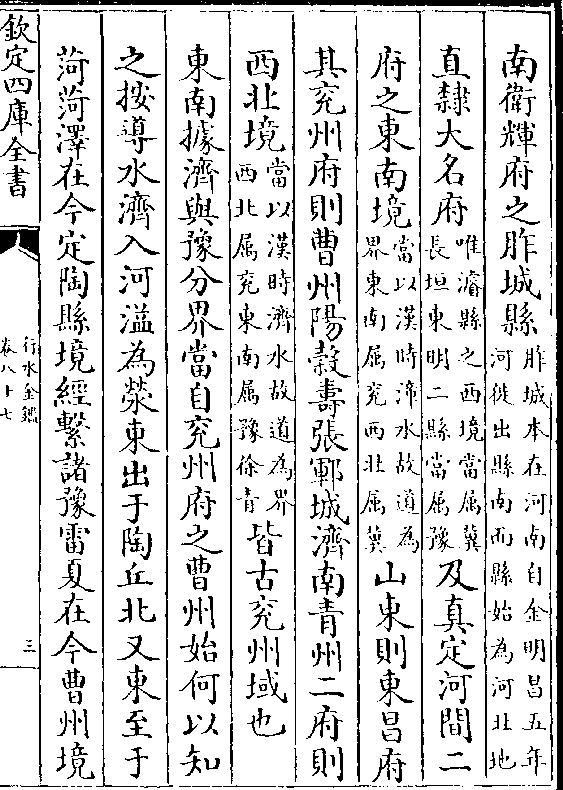 南衛輝府之胙城縣胙城本在河南自金明昌五年河徙出縣南而縣始為河北地
直隸大名府唯濬縣之西境當属冀長垣東明二縣當属豫及真定河間二
府之東南境當以漢時漳水故道為界東南属兖西北属冀山東則東昌府
其兖州府則曹州陽穀壽張鄆城濟南青州二府則
西北境當以漢時濟水故道為界西北属兖東南属豫徐青皆古兖州域也
東南據濟與豫分界當自兖州府之曹州始何以知
之按導水濟入河溢為滎東出于陶丘北又東至于
菏菏澤在今定陶縣境經繫諸豫雷夏在今曹州境
欽定四庫全書
行水金鑑
卷八十七
三